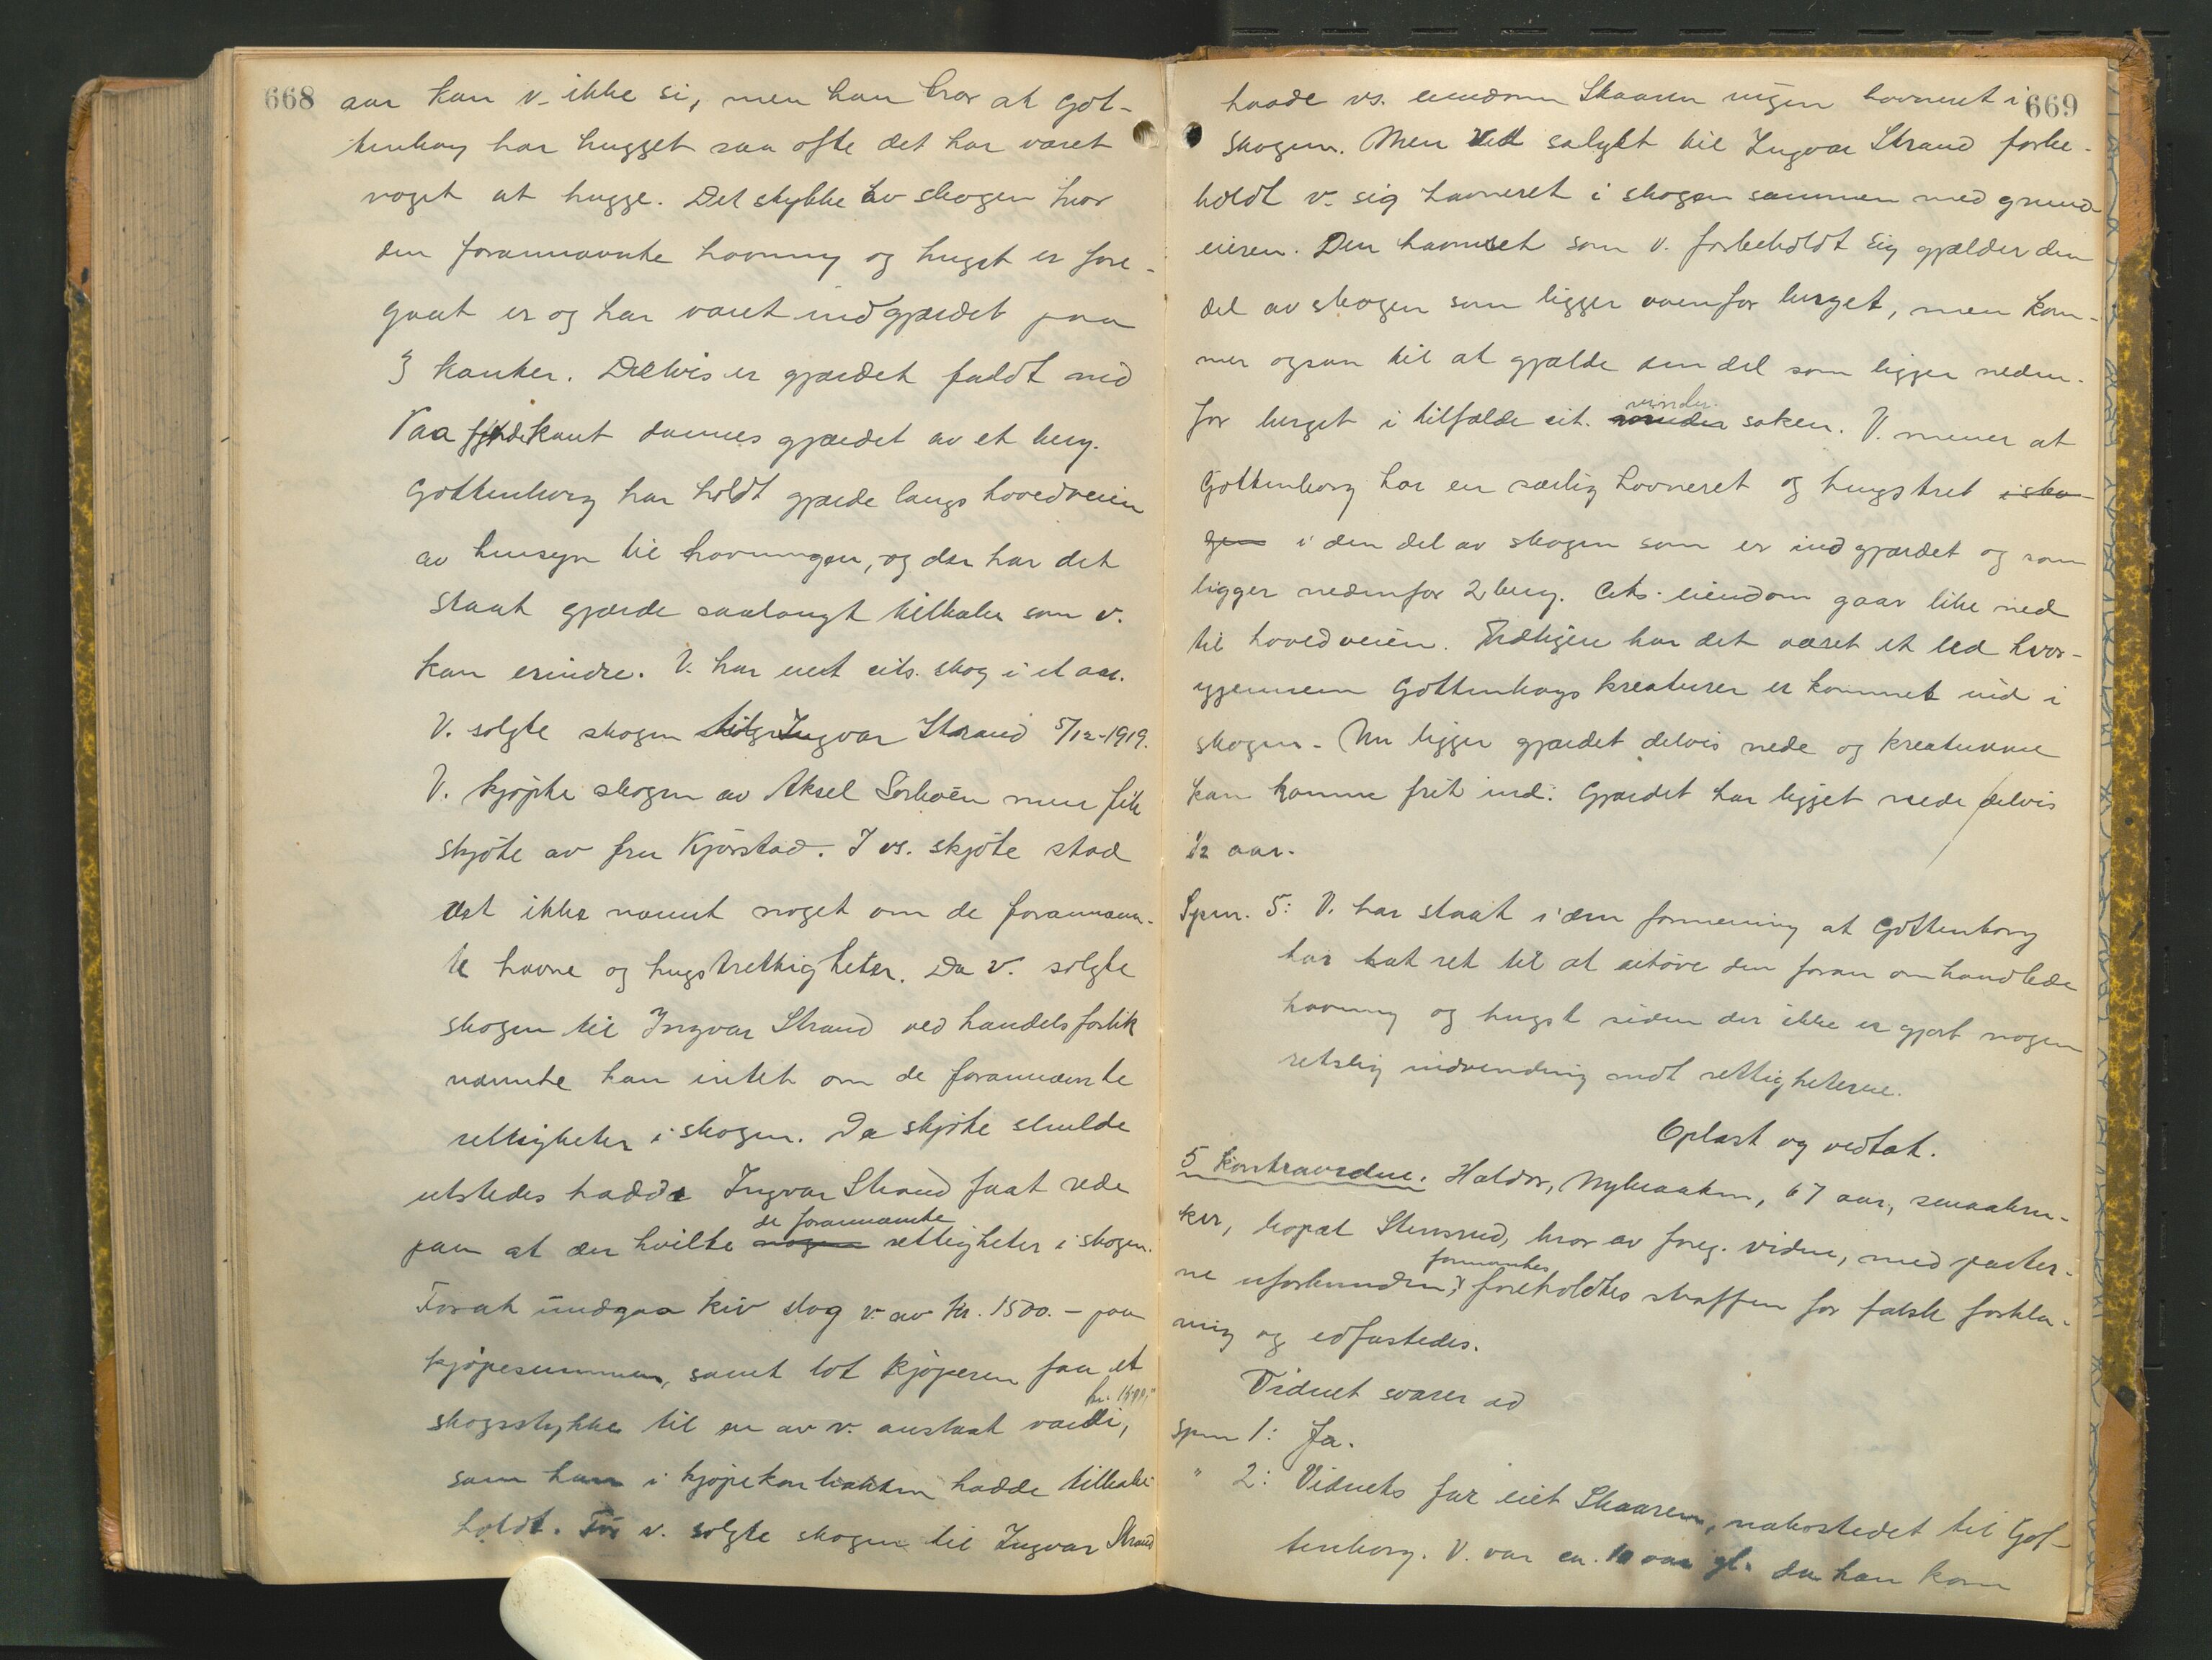 668
aar kan v. ikke si, men han tror at Got-
tenborg har hugget saa ofte det har været
noget at hugge. Det stykke av skogen hvor
den forannævnte havning og hugst er fore-
gaat er og har været indgjærdet paa
3 kanter. Delvis er gjærdet faldt ned
Paa fjerde kant dannes gjærdet av et berg.
Gottenborg har holdt gjærde langs hovedveien
av hensyn til havningen, og der har det
staat gjærde saalangt tilbake som v.
kan erindre. V. har eiet cits. skog i et aar.
V. solgte skogen til Ingvar Strand 5/12-1919.
V. kjøpte skogen av Aksel Sorboén men fik
skjøte av fru Kjørstad. I vs. skjøte stod
det ikke nævnt noget om de forannævn-
te havne og hugstrettigheter. Da v. solgte
skogen til Ingvar Strand ved handelsforlik
nævnte han intet om de forannævnte
rettigheter i skogen. Da skjøte skulde
utstedes hadde Ingvar Strand faat rede
de forannævnte
paa at der hvilte nogen rettigheter i skogen.
For at undgaa kiv slog v. av kr. 1500.- paa
kjøpesummen, samt lot kjøperen faa et
kr. 1500,-
skogsstykke til en av v. anslaat værdi,
som han i kjøpekontrakten hadde tilbake-
holdt. Før v. solgte skogen til Ingvar Strand
669
hadde vs. eiendom Skaaren ingen havneret i
skogen. Men ved salget til Ingvar Strand forbe-
holdt v. sig havneret i skogen sammen med grund-
eieren. Den havneret som v. forbeholdt sig gjælder den
del av skogen som ligger ovenfor berget, men kom-
mer ogsaa til at gjælde den del som ligger neden-
vinder
for berget i tilfælde cit. vinder saken. V. mener at
Gottenborg har en særlig havneret og hugstret i sko-
gen i den del av skogen som er indgjærdet og som
ligger nedenfor 2 berg. Cits. eiendom gaar like ned
til hovedveien. Tidligere har det været et led hvor-
gjennem Gottenborgs kreaturer er kommet ind i
skogen. Nu ligger gjærdet delvis nede og kreaturene
kan komme frit ind. Gjærdet har ligget nede delvis
1/2 aar.
Spm. 5: V. har staat i den formening at Gottenborg
har hat ret til at utöve den foran omhandlede
havning og hugst siden der ikke er gjort nogen
retslig indvending mot rettigheterne.
Oplæst og vedtat.
5 Kontravidne. Haldor, Nybraaten, 67 aar, smaabru-
ker, bopæl Stensrud, bror av foreg. vidne, med parter-
formantes
ne uforbunden, foreholdtes straffen for falsk forkla-
ring og edfæstedes.
Vidnet svarer ad
Spm 1: Ja.
" 2: Vidnets far eiet Skaaren, nabostedet til Got-
tenborg. V. var ca. 10 aar gl. da han kom